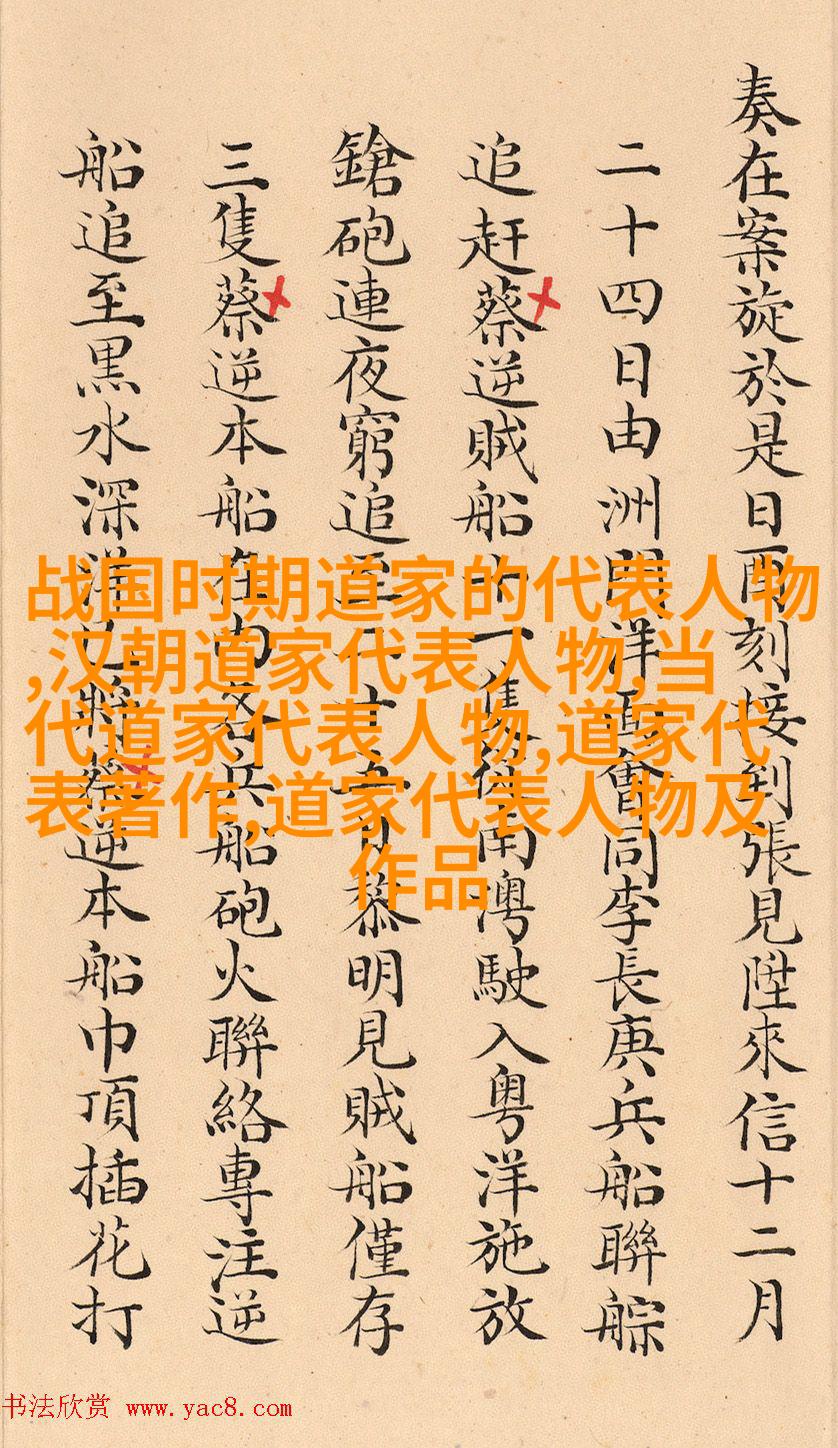 奏在案旋於是日酉刻接到張見陞來信十二月
二十四日由洲洋面會同李長庚兵船聯䑸
追赶蔡逆賊船一隻南澳駛入粤洋施放
鎗砲連夜窮追至二十五日黎明見賊船僅存
三隻蔡逆本船在內各兵船砲火聯絡專注逆
船追至黒水深洋已將蔡逆本船巾頂插花打
战国时期道家的代表人物
,汉朝道家代表人物,当
代道家代表人物,道家代
表著作,道家代表人物及
作品
书法欣赏 www.yac8.com